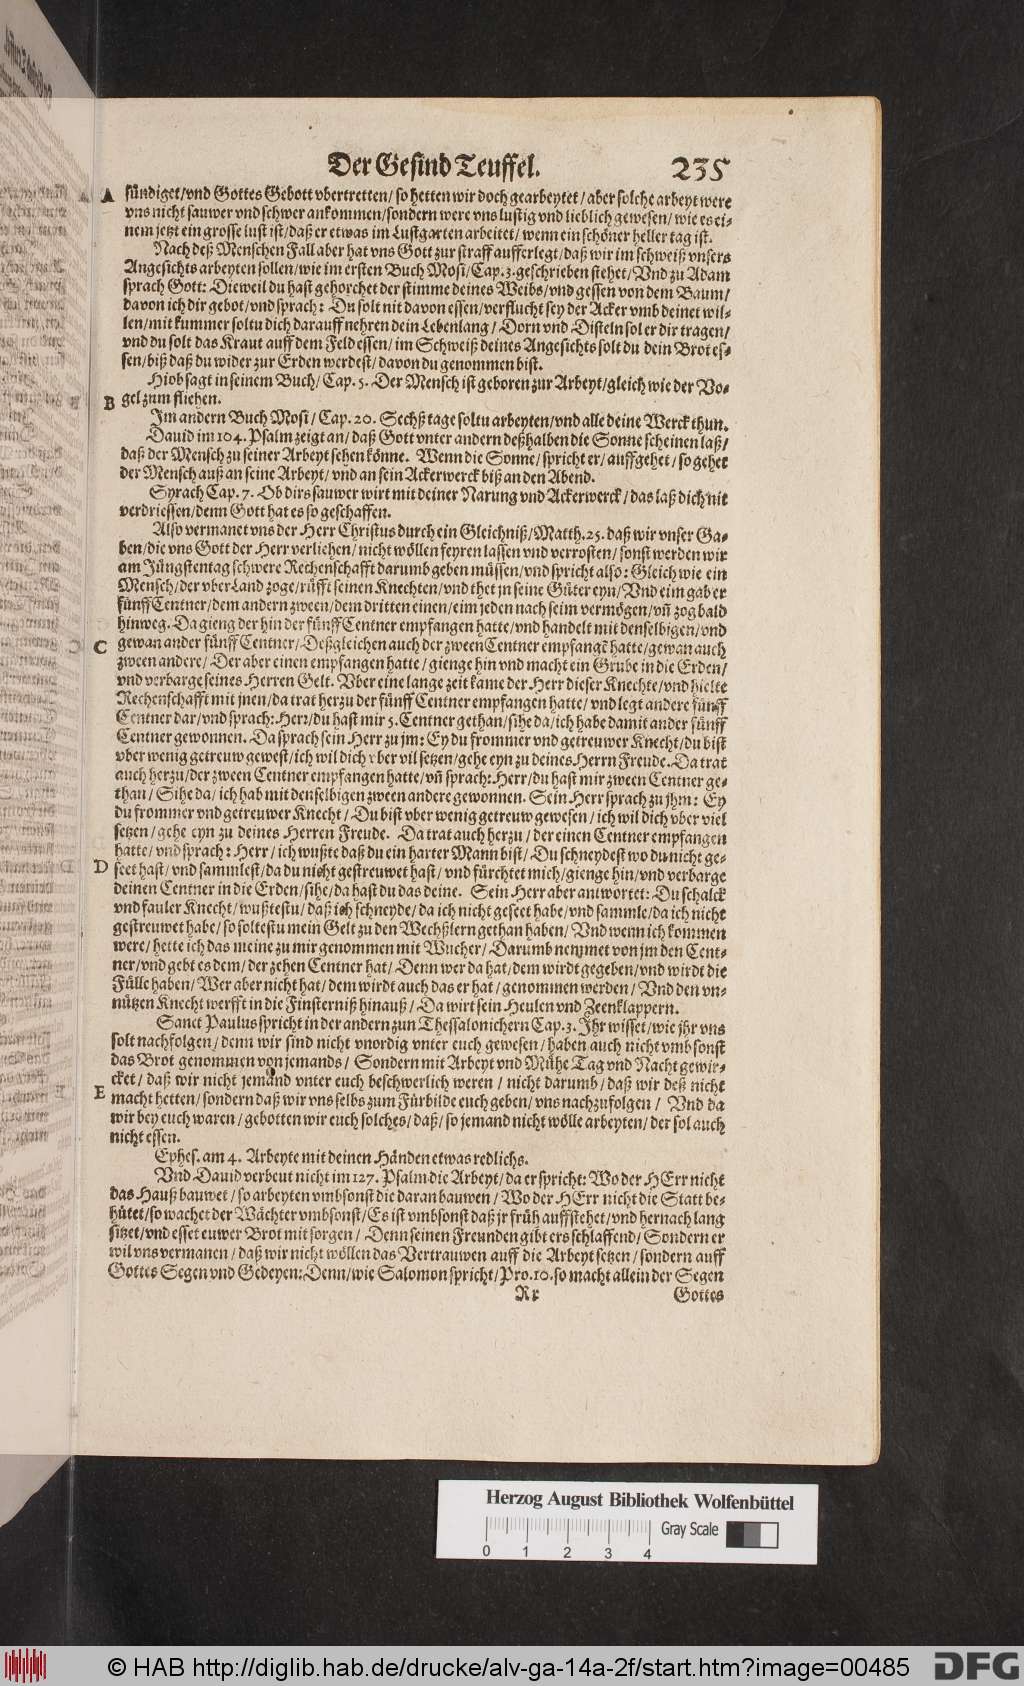 Der Gesind Teuffel. 235
A sündiget/vnd Gottes Gebott vbertretten/so hetten wir doch gearbeytet/aber solche arbeyt were
vns nicht sauwer vnd schwer ankommen/sondern were vns lustig vnd lieblich gewesen/wie es ei-
nem jetzt ein grosse lust ist/daß er etwas im Lustgarten arbeitet/wenn ein schöner heller tag ist.
Nach deß Menschen Fall aber hat vns Gott zur straff aufferlegt/daß wir im schweiß vnsers
Angesichts arbeyten sollen/wie im ersten Buch Mosi/Cap.3.geschrieben stehet/Vnd zu Adam
sprach Gott: Dieweil du hast gehorchet der stimme deines Weibs/vnd gessen von dem Baum/
davon ich dir gebot/vnd sprach: Du solt nit davon essen/verflucht sey der Acker vmb deinet wil-
len/mit kummer soltu dich darauff nehren dein Lebenlang/Dorn vnd Disteln sol er dir tragen/
vnd du solt das Kraut auff dem Feld essen/im Schweiß deines Angesichts solt du dein Brot es-
sen/biß daß du wider zur Erden werdest/davon du genommen bist.
Hiob sagt in seinem Buch/Cap. 5. Der Mensch ist geboren zur Arbeyt/gleich wie der Vo-
B gel zum fliehen.
Im andern Buch Mosi/Cap. 20. Sechß tage soltu arbeyten/vnd alle deine Werck thun.
Dauid im 104. Psalm zeigt an/daß Gott vnter andern deßhalben die Sonne scheinen laß/
daß der Mensch zu seiner Arbeyt sehen könne. Wenn die Sonne/spricht er/auffgehet/so gehet
der Mensch auß an seine Arbeyt/vnd an sein Ackerwerck biß an den Abend.
Syrach Cap. 7. Ob dirs sauwer wirt mit deiner Narung vnd Ackerwerck/das laß dich nit
verdriessen/denn Gott hat es so geschaffen.
Also vermanet vns der Herr Christus durch ein Gleichniß/Matth.25. daß wir vnser Ga-
ben/die vns Gott der Herr verliehen/nicht wöllen feyren lassen vnd verrosten/sonst werden wir
am Jüngstentag schwere Rechenschafft darumb geben müssen/vnd spricht also: Gleich wie ein
Mensch/der vber Land zoge/rüfft seinen Knechten/vnd thet jn seine Güter eyn/Vnd eim gab er
fünff Centner/dem andern zween/dem dritten einen/eim jeden nach seim vermögen/vñ zog bald
hinweg. Da gieng der hin der fünff Centner empfangen hatte/vnd handelt mit denselbigen/vnd
C gewan ander fünff Centner/Deßgleichen auch der zween Centner empfangē hatte/gewan auch
zween andere/Der aber einen empfangen hatte/gienge hin vnd macht ein Grube in die Erden/
vnd verbarge seines Herren Gelt. Vber eine lange zeit kame der Herr dieser Knechte/vnd hielte
Rechenschafft mit jnen/da trat herzu der fünff Centner empfangen hatte/vnd legt andere fünff
Centner dar/vnd sprach: Herr/du hast mir 5. Centner gethan/sihe da/ich habe damit ander fünff
Centner gewonnen. Da sprach sein Herr zu jm: Ey du frommer vnd getreuwer Knecht/du bist
vber wenig getreuw gewest/ich wil dich vber vil setzen/gehe eyn zu deines Herrn Freude. Da trat
auch herzu/der zween Centner empfangen hatte/vñ sprach: Herr/du hast mir zween Centner ge-
than/Sihe da/ich hab mit denselbigen zween andere gewonnen. Sein Herr sprach zu jhm: Ey
du frommer vnd getreuwer Knecht/Du bist vber wenig getreuw gewesen/ich wil dich vber viel
setzen/gehe eyn zu deines Herren Freude. Da trat auch herzu/der einen Centner empfangen
hatte/vnd sprach: Herr/ich wußte daß du ein harter Mann bist/Du schneydest wo du nicht ge-
D seet hast/vnd sammlest/da du nicht gestreuwet hast/vnd fürchtet mich/gienge hin/vnd verbarge
deinen Centner in die Erden/sihe/da hast du das deine. Sein Herr aber antwortet: Du schalck
vnd fauler Knecht/wußtestu/daß ich schneyde/da ich nicht geseet habe/vnd sammle/da ich nicht
gestreuwet habe/so soltestu mein Gelt zu den Wechßlern gethan haben/Vnd wenn ich kommen
were/hette ich das meine zu mir genommen mit Wucher/Darumb nemmet von jm den Cent-
ner/vnd gebt es dem/der zehen Centner hat/Denn wer da hat/dem wirdt gegeben/vnd wirdt die
Fülle haben/Wer aber nicht hat/dem wirdt auch das er hat/genommen werden/Vnd den vn-
nützen Knecht werfft in die Finsterniß hinauß/Da wirt sein Heulen vnd Zeenklappern.
Sanct Paulus spricht in der andern zun Thessalonichern Cap.3. Ihr wisset/wie jhr vns
solt nachfolgen/denn wir sind nicht vnordig vnter euch gewesen/haben auch nicht vmb sonst
das Brot genommen von jemands/Sondern mit Arbeyt vnd Mühe Tag vnd Nacht gewir-
cket/daß wir nicht jemand vnter euch beschwerlich weren/nicht darumb/daß wir deß nicht
E macht hetten/sondern daß wir vns selbs zum Fürbilde euch geben/vns nachzufolgen/Vnd da
wir bey euch waren/gebotten wir euch solches/daß/so jemand nicht wölle arbeyten/der sol auch
nicht essen.
Ephes. am 4. Arbeyte mit deinen Händen etwas redlichs.
Vnd Dauid verbeut nicht im 127. Psalm die Arbeyt/da er spricht: Wo der HErr nicht
das Hauß bauwet/so arbeyten vmbsonst die daran bauwen/Wo der HErr nicht die Statt be-
hütet/so wachet der Wächter vmbsonst/Es ist vmbsonst daß jr früh auffstehet/vnd hernach lang
sitzet/vnd esset euwer Brot mit sorgen/Denn seinen Freunden gibt ers schlaffend/Sondern er
wil vns vermanen/daß wir nicht wöllen das Vertrauwen auff die Arbeyt setzen/sondern auff
Gottes Segen vnd Gedeyen: Denn/wie Salomon spricht/Pro.10.so macht allein der Segen
Rr Gottes
Herzog August Bibliothek Wolfenbüttel
Gray Scale
0 1 2 3 4
© HAB http://diglib.hab.de/drucke/alv-ga-14a-2f/start.htm?image=00485 DFG